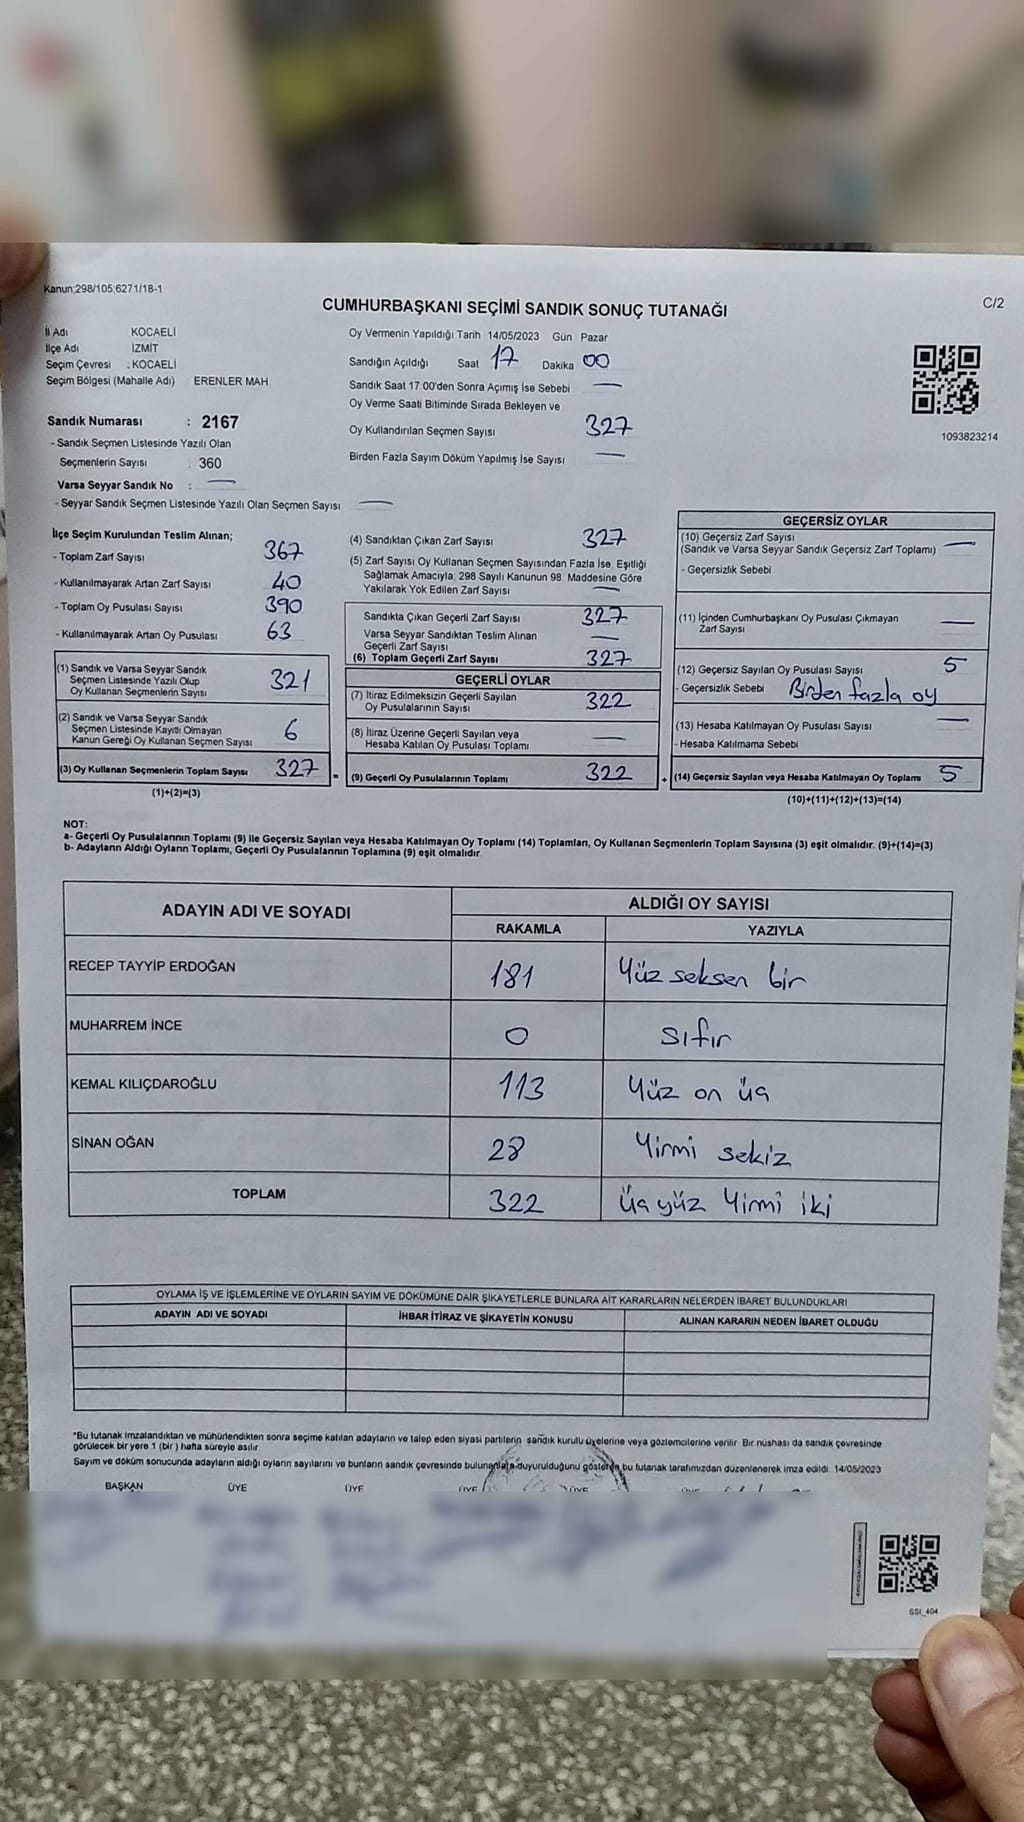 Kanun:298/105;6271/18-1
C/2
CUMHURBAŞKANI SEÇİMİ SANDIK SONUÇ TUTANAĞI
İl Adı KOCAELİ
İlçe Adı İZMİT
Seçim Çevresi : KOCAELİ
Seçim Bölgesi (Mahalle Adı) ERENLER MAH.
Sandık Numarası : 2167
- Sandık Seçmen Listesinde Yazılı Olan
Seçmenlerin Sayısı : 360
Varsa Seyyar Sandık No : —
- Seyyar Sandık Seçmen Listesinde Yazılı Olan Seçmen Sayısı —
Oy Vermenin Yapıldığı Tarih 14/05/2023 Gün Pazar
Sandığın Açıldığı Saat 17 Dakika 00
Sandık Saat 17.00'den Sonra Açımış İse Sebebi —
Oy Verme Saati Bitiminde Sırada Bekleyen ve
Oy Kullandırılan Seçmen Sayısı 327
Birden Fazla Sayım Döküm Yapılmış İse Sayısı —
1093823214
İlçe Seçim Kurulundan Teslim Alınan;
- Toplam Zarf Sayısı 367
- Kullanılmayarak Artan Zarf Sayısı 40
- Toplam Oy Pusulası Sayısı 390
- Kullanılmayarak Artan Oy Pusulası 63
(1) Sandık ve Varsa Seyyar Sandık
Seçmen Listesinde Yazılı Olup
Oy Kullanan Seçmenlerin Sayısı 321
(2) Sandık ve Varsa Seyyar Sandık
Seçmen Listesinde Kayıtlı Olmayan
Kanun Gereği Oy Kullanan Seçmen Sayısı 6
(3) Oy Kullanan Seçmenlerin Toplam Sayısı 327 =
(1)+(2)=(3)
(4) Sandıktan Çıkan Zarf Sayısı 327
(5) Zarf Sayısı Oy Kullanan Seçmen Sayısından Fazla İse, Eşitliği
Sağlamak Amacıyla, 298 Sayılı Kanunun 98. Maddesine Göre
Yakılarak Yok Edilen Zarf Sayısı —
Sandıkta Çıkan Geçerli Zarf Sayısı 327
Varsa Seyyar Sandıktan Teslim Alınan
Geçerli Zarf Sayısı —
(6) Toplam Geçerli Zarf Sayısı 327
GEÇERLİ OYLAR
(7) İtiraz Edilmeksizin Geçerli Sayılan
Oy Pusulalarının Sayısı 322
(8) İtiraz Üzerine Geçerli Sayılan veya
Hesaba Katılan Oy Pusulası Toplamı —
(9) Geçerli Oy Pusulalarının Toplamı 322 +
GEÇERSİZ OYLAR
(10) Geçersiz Zarf Sayısı
(Sandık ve Varsa Seyyar Sandık Geçersiz Zarf Toplamı) —
- Geçersizlik Sebebi
(11) İçinden Cumhurbaşkanı Oy Pusulası Çıkmayan
Zarf Sayısı —
(12) Geçersiz Sayılan Oy Pusulası Sayısı 5
- Geçersizlik Sebebi Birden fazla oy
(13) Hesaba Katılmayan Oy Pusulası Sayısı —
- Hesaba Katılmama Sebebi
(14) Geçersiz Sayılan veya Hesaba Katılmayan Oy Toplamı 5
(10)+(11)+(12)+(13)=(14)
NOT:
a- Geçerli Oy Pusulalarının Toplamı (9) ile Geçersiz Sayılan veya Hesaba Katılmayan Oy Toplamı (14) Toplamları, Oy Kullanan Seçmenlerin Toplam Sayısına (3) eşit olmalıdır. (9)+(14)=(3)
b- Adayların Aldığı Oyların Toplamı, Geçerli Oy Pusulalarının Toplamına (9) eşit olmalıdır.
ADAYIN ADI VE SOYADI ALDIĞI OY SAYISI
RAKAMLA YAZIYLA
RECEP TAYYİP ERDOĞAN 181 Yüz seksen bir
MUHARREM İNCE 0 sıfır
KEMAL KILIÇDAROĞLU 113 Yüz on üç
SİNAN OĞAN 28 Yirmi sekiz
TOPLAM 322 Üç yüz Yirmi iki
OYLAMA İŞ VE İŞLEMLERİNE VE OYLARIN SAYIM VE DÖKÜMÜNE DAİR ŞİKAYETLERLE BUNLARA AİT KARARLARIN NELERDEN İBARET BULUNDUKLARI
ADAYIN ADI VE SOYADI İHBAR İTİRAZ VE ŞİKAYETİN KONUSU ALINAN KARARIN NEDEN İBARET OLDUĞU
*Bu tutanak imzalandıktan ve mühürlendikten sonra seçime katılan adayların ve talep eden siyasi partilerin sandık kurulu üyelerine veya gözlemcilerine verilir. Bir nüshası da sandık çevresinde
görülecek bir yere 1 (bir) hafta süreyle asılır
Sayım ve döküm sonucunda adayların aldığı oyların sayılarını ve bunların sandık çevresinde bulunanlara duyurulduğunu gösteren bu tutanak tarafımızdan düzenlenerek imza edildi. 14/05/2023
BAŞKAN ÜYE ÜYE ÜYE ÜYE
SSI_404